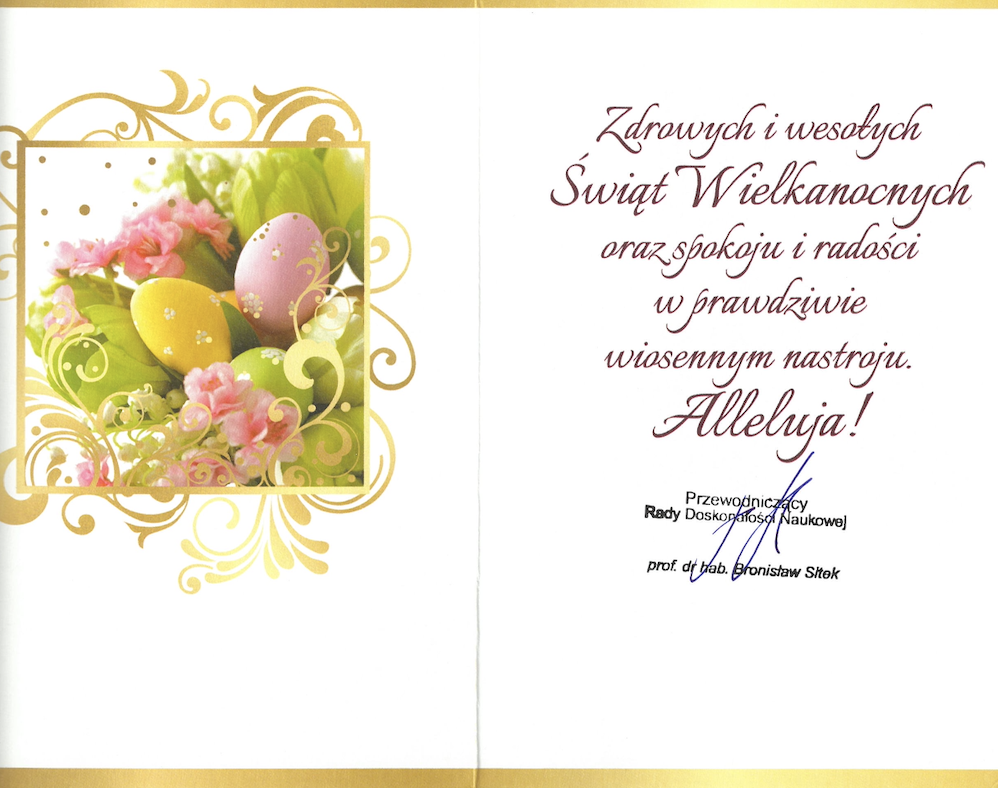 Zdrowych i wesołych
Świąt Wielkanocnych
oraz spokoju i radości
w prawdziwie
wiosennym nastroju.
Alleluja!
Przewodniczący
Rady Doskonałości Naukowej
prof. dr hab. Bronisław Sitek